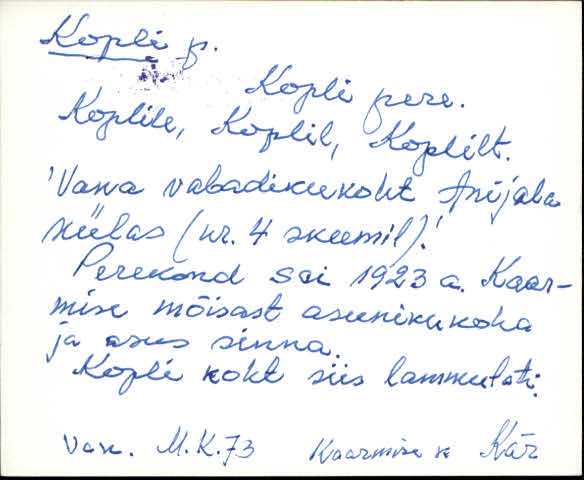 Kopli p.
Kopli pere.
Koplile, Koplil, Koplilt.
'Vana vabadikukoht Anijala
külas (nr. 4 skeemil).'
Perekond sai 1923 a. Kaar-
mise mõisast asunikukoha
ja asus sinna.
Kopli koht siis lammutati.
Van. M.K. 73 Kaarmise k Kär